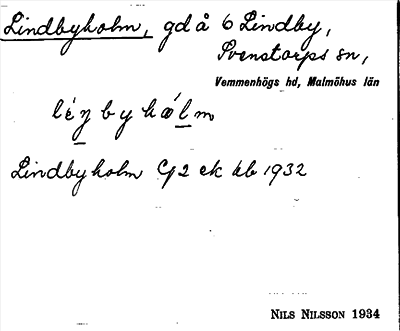 Lindbyholm, gd å 6 Lindby,
Svenstorps sn,
Vemmenhögs hd, Malmöhus län
Lindbyholm C12 ek kb 1932
NILS NILSSON 1934